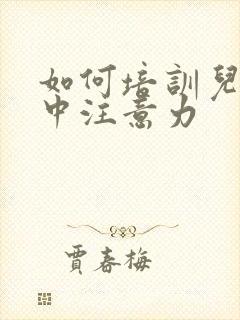 如何培訓兒
中注意力
賈春梅